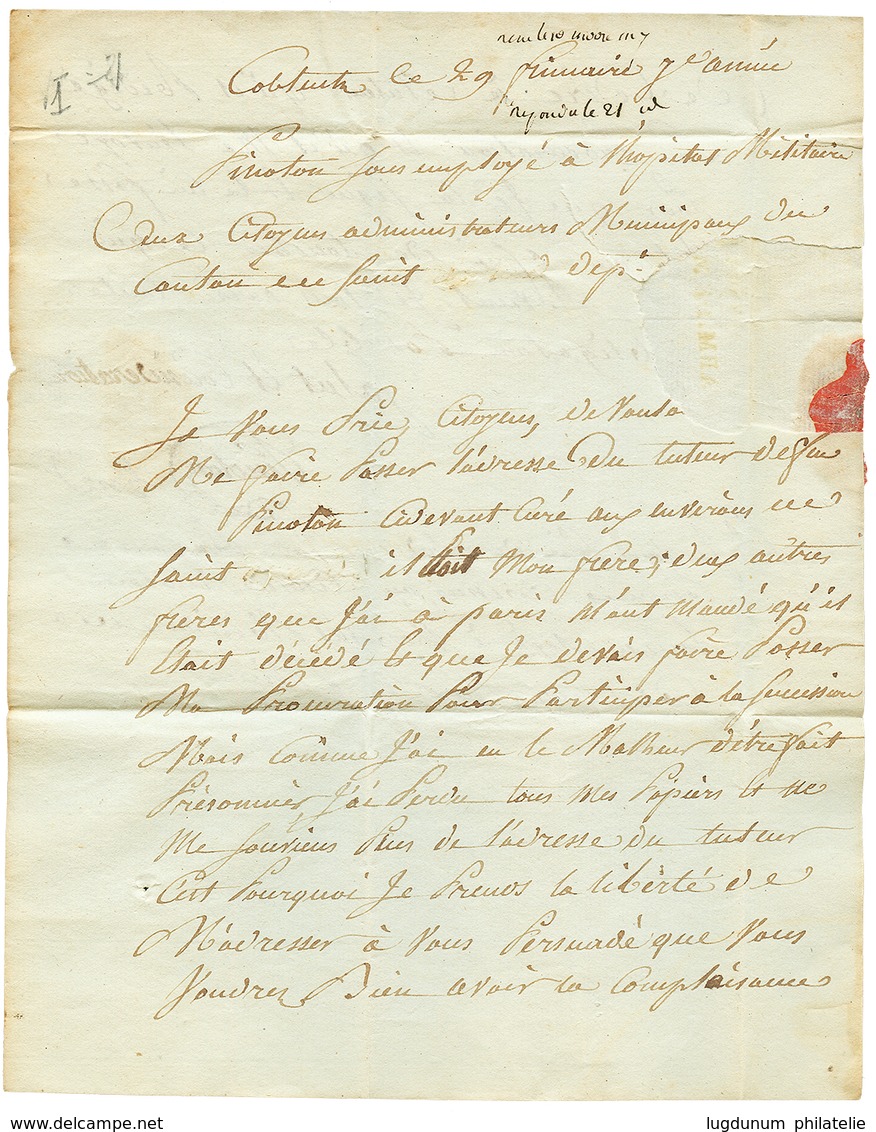 Coblentz le 29 frimaire 7e année
repondu le 21 id
Pinoton sous employé à l'hopital Militaire
Aux Citoyens administrateurs Municipaux du
Canton de Saint dept
Je Vous Prie, Citoyens, de Vouloir
Me faire Passer l'adresse Du tuteur de feu
Pinoton cidevant Curé aux environs de
Saint il Etoit Mon frere; deux autres
freres que J'ai à paris M'ont Mandé qu'il
Etait décédé Et que Je devais faire Passer
Ma Procuration Pour Participer à la Succession
Mais Comme J'ai eu le Malheur d'être fait
Prisonnier, J'ai Perdu tous Mes Papiers Et ne
Me Souviens Plus de l'adresse du tuteur
C'est Pourquoi Je Prends la liberté de
M'adresser à Vous Persuadé que Vous
Voudrez Bien avoir la Complaisance
delcampe.net
lugdunum philatelie